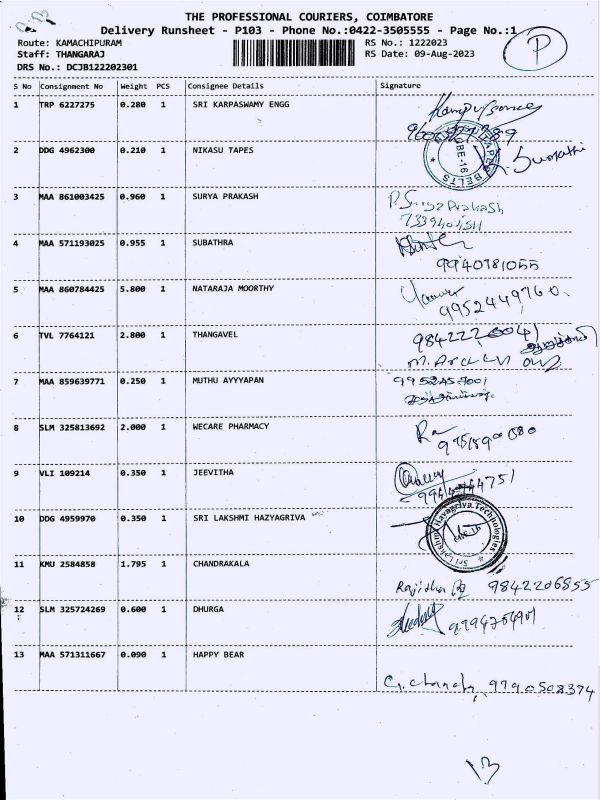 THE PROFESSIONAL COURIERS, COIMBATORE
Delivery Runsheet - P103 - Phone No.:0422-3505555 - Page No.:1
P
Route: KAMACHIPURAM RS No.: 1222023
Staff: THANGARAJ RS Date: 09-Aug-2023
DRS No.: DCJB122202301
S No Consignment No Weight PCS Consignee Details Signature
1 TRP 6227275 0.280 1 SRI KARPASWAMY ENGG
2 DDG 4962300 0.210 1 NIKASU TAPES
BELTS
3 MAA 861003425 0.960 1 SURYA PRAKASH
P. Surya Prakash
4 MAA 571193025 0.955 1 SUBATHRA
9940781055
5 MAA 860784425 5.800 1 NATARAJA MOORTHY
9952449760.
6 TVL 7764121 2.800 1 THANGAVEL
7 MAA 859639771 0.250 1 MUTHU AYYYAPAN
8 SLM 325813692 2.000 1 WECARE PHARMACY
9 VLI 109214 0.350 1 JEEVITHA
10 DDG 4959970 0.350 1 SRI LAKSHMI HAZYAGRIVA
Sri Lakshmi Hayagriva Technologies
11 KMU 2584858 1.795 1 CHANDRAKALA
9842206855
12 SLM 325724269 0.600 1 DHURGA
9994704901
13 MAA 571311667 0.090 1 HAPPY BEAR
9790508374
13